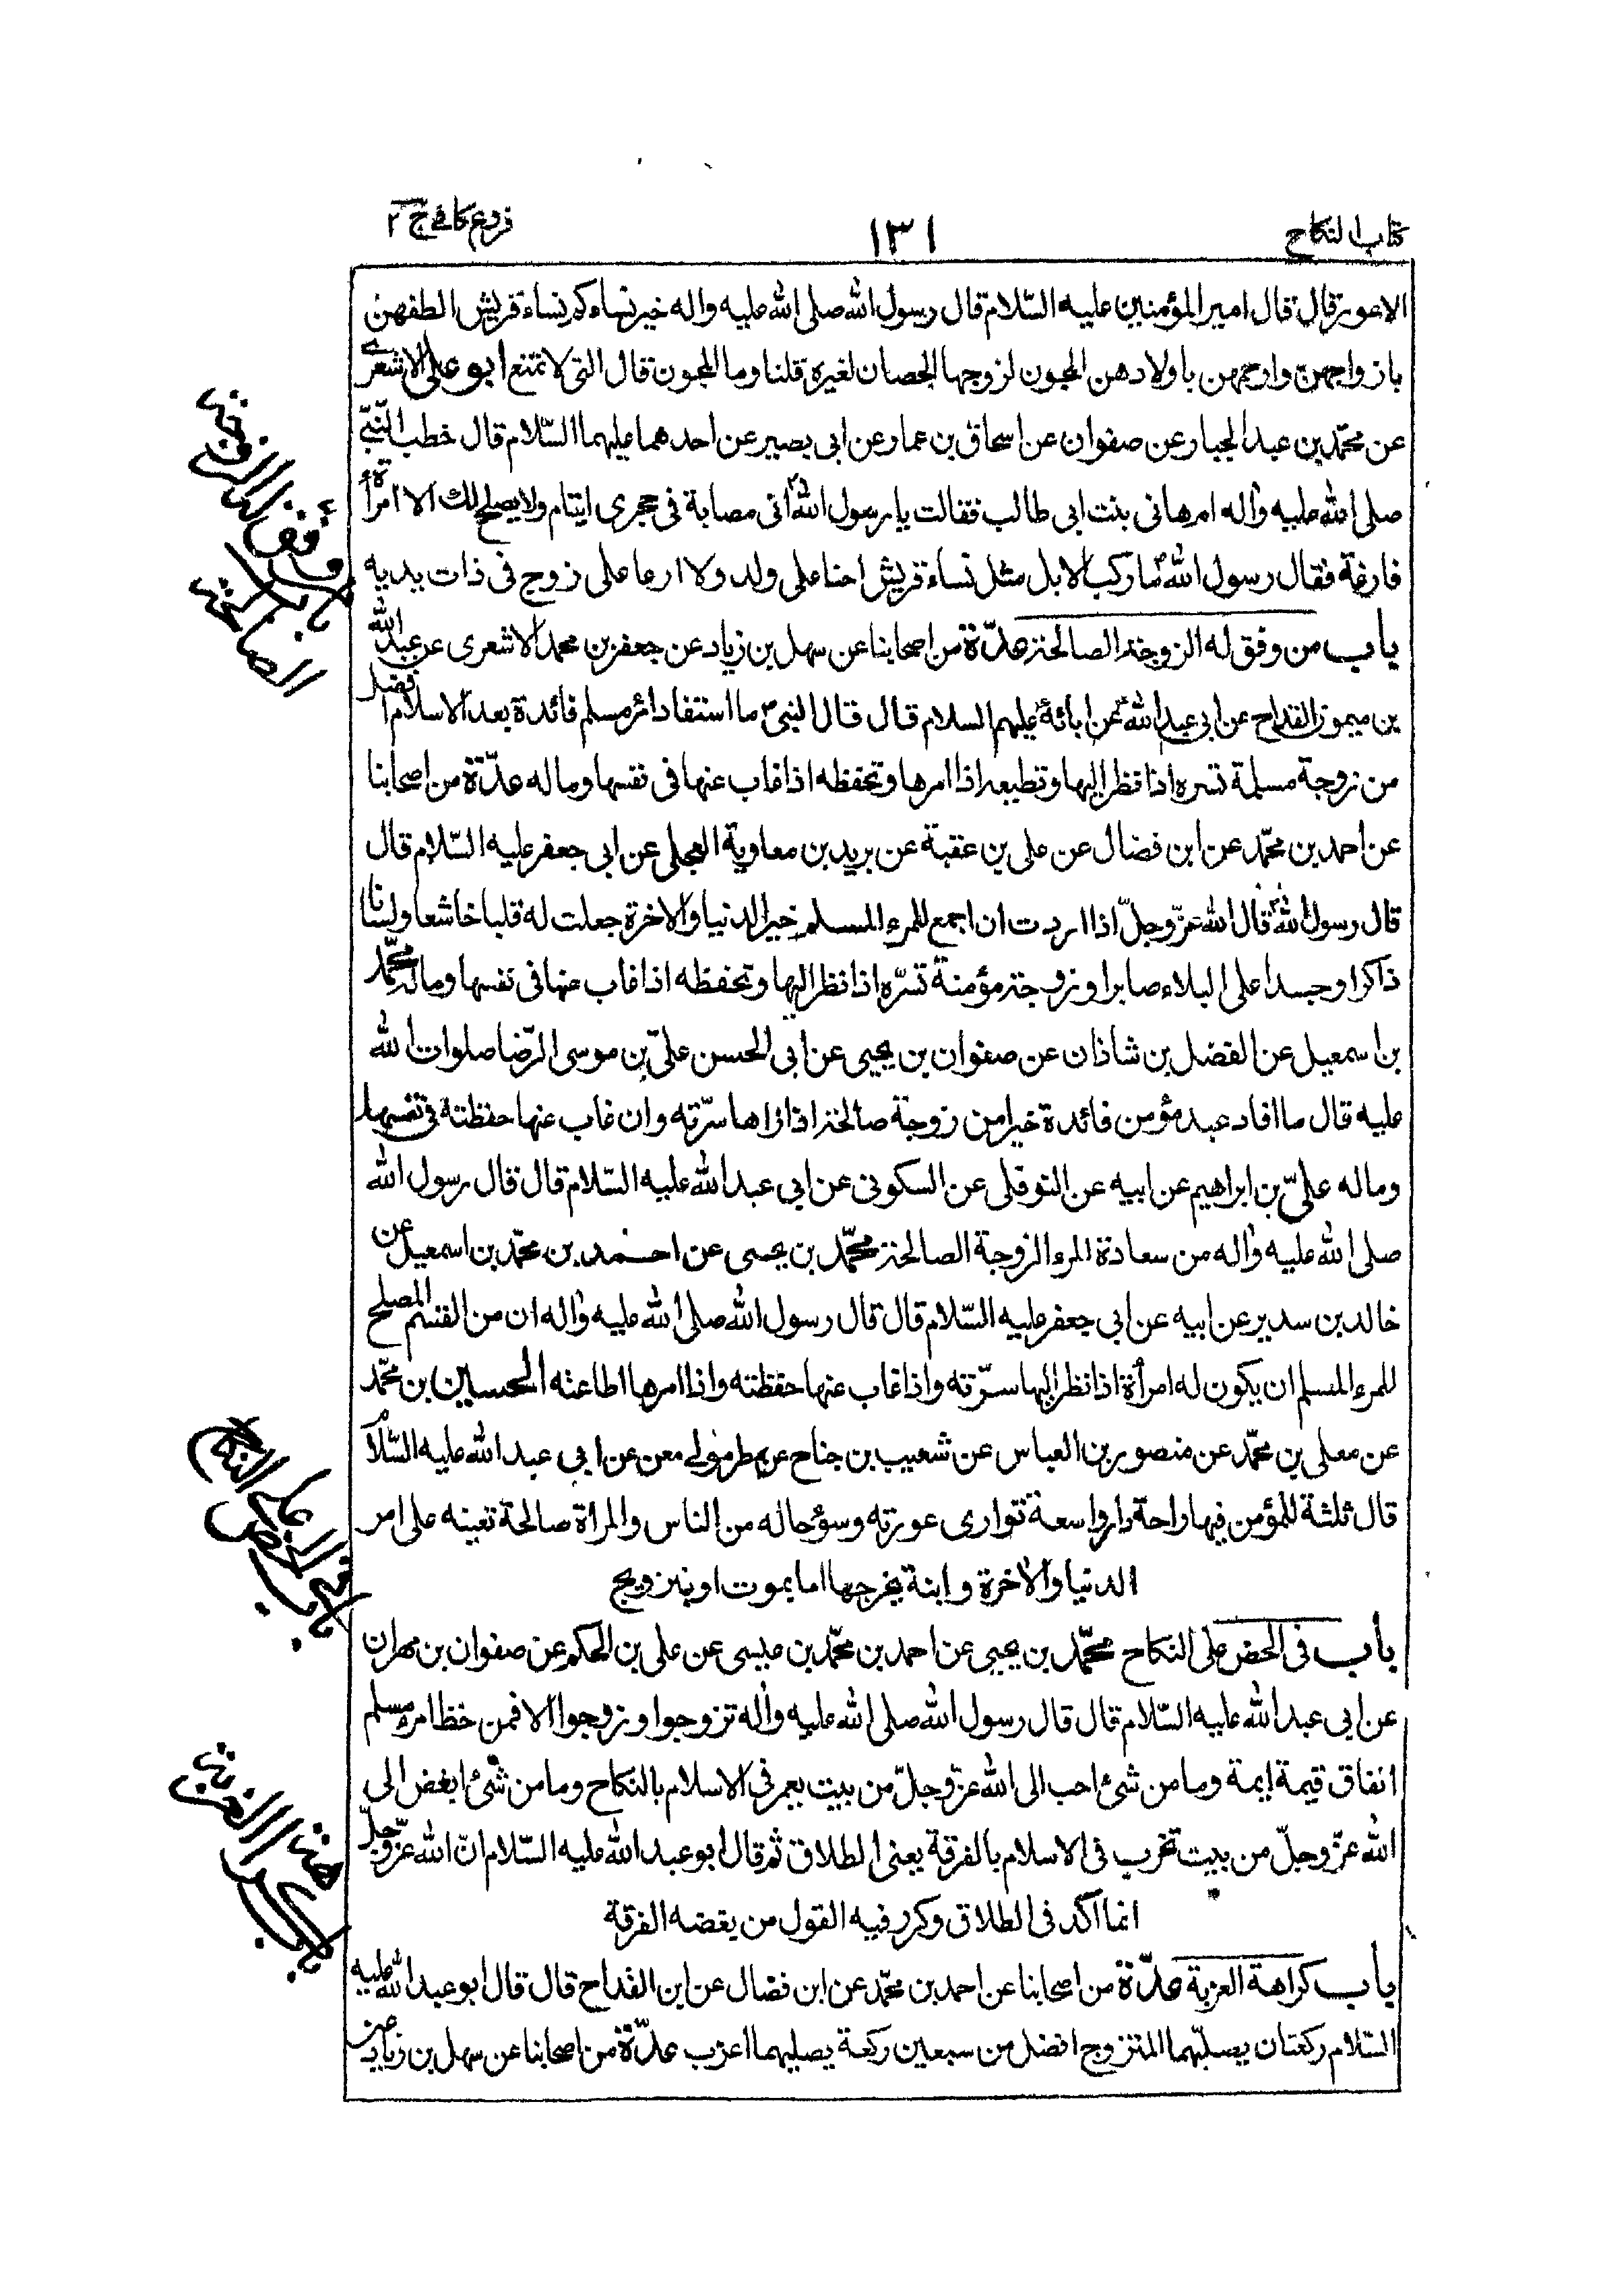 كتاب النكاح
١٣١
فروع كافي ج ٢
الاعور قال قال امير المؤمنين عليه السّلام قال رسول الله صلى الله عليه واله خير نساءكم نساء قريش الطفهن
بازواجهن وارحمهن باولادهن المجون لزوجها الحصان لغيره قلنا وما المجون قال التي لا تمتنع ابو على الاشعرى
عن محمّد بن عبد الجبار عن صفوان عن اسحاق بن عمار عن ابى بصير عن احدهما عليهما السّلام قال خطب النّبىّ
صلى الله عليه واله ام هانى بنت ابى طالب فقالت يا رسول الله انى مصابة فى حجرى ايتام ولا يصلح لك الا امرأة
فارغة فقال رسول الله ما ركب الابل مثل نساء قريش احنا على ولد ولا ارعا على زوج فى ذات يديه
باب من وفق له الزوجة الصالحة عدّة من اصحابنا عن سهل بن زياد عن جعفر بن محمد الاشعرى عن عبد الله
بن ميمون القداح عن ابى عبد الله عن ابائه عليهم السلام قال قال النبى ما استفاد امرء مسلم فائدة بعد الاسلام افضل
من زوجة مسلمة تسره اذا نظر اليها وتطيعه اذا امرها وتحفظه اذا غاب عنها فى نفسها وماله عدّة من اصحابنا
عن احمد بن محمّد عن ابن فضال عن على بن عقبة عن بريد بن معاوية العجلى عن ابى جعفر عليه السّلام قال
قال رسول الله قال الله عزّ وجلّ اذا اردت ان اجمع للمرء المسلم خير الدنيا والاخرة جعلت له قلبا خاشعا ولسانا
ذاكرا وجسدا على البلاء صابرا وزوجة مؤمنة تسرّه اذا نظر اليها وتحفظه اذا غاب عنها فى نفسها وماله محمّد
بن اسمعيل عن الفضل بن شاذان عن صفوان بن يحيى عن ابى الحسن علىّ بن موسى الرّضا صلوات الله
عليه قال ما افاد عبد مؤمن فائدة خيرا من زوجة صالحة اذا راها سرّته وان غاب عنها حفظته فى نفسها
وماله علىّ بن ابراهيم عن ابيه عن النوفلى عن السكونى عن ابى عبد الله عليه السّلام قال قال رسول الله
صلى الله عليه واله من سعادة المرء الزوجة الصالحة محمّد بن يحيى عن احمد بن محمّد بن اسمعيل عن
خالد بن سدير عن ابيه عن ابى جعفر عليه السّلام قال قال رسول الله صلى الله عليه واله ان من القسم المصلح
للمرء المسلم ان يكون له امرأة اذا نظر اليها سرّته واذا غاب عنها حفظته واذا امرها اطاعته الحسين بن محمّد
عن معلى بن محمّد عن منصور بن العباس عن شعيب بن جناح عن مطر مولى معن عن ابى عبد الله عليه السّلام
قال ثلثة للمؤمن فيها راحة دار واسعة توارى عورته وسوء حاله من الناس والمرأة صالحة تعينه على امر
الدنيا والاخرة وابنة يخرجها اما بموت او بتزويج
باب فى الحض على النكاح محمّد بن يحيى عن احمد بن محمّد بن عيسى عن على بن الحكم عن صفوان بن مهران
عن ابى عبد الله عليه السّلام قال قال رسول الله صلى الله عليه واله تزوجوا وزوجوا الا فمن حظ امرء مسلم
انفاق قيمة ايمة وما من شئ احب الى الله عزّ وجلّ من بيت يعمر فى الاسلام بالنكاح وما من شئ ابغض الى
الله عزّ وجلّ من بيت تخرب فى الاسلام بالفرقة يعنى الطلاق ثم قال ابو عبد الله عليه السّلام انّ الله عزّ وجلّ
انما اكد فى الطلاق وكرر فيه القول من بغضه الفرقة
باب كراهة العزبة عدّة من اصحابنا عن احمد بن محمّد عن ابن فضال عن ابن القداح قال قال ابو عبد الله عليه
السّلام ركعتان يصليّهما المتزوج افضل من سبعين ركعة يصليهما اعزب عدّة من اصحابنا عن سهل بن زياد عن
باب من وفق له الزوجة
الصالحة
باب فى الحض على النكاح
باب كراهة العزبة